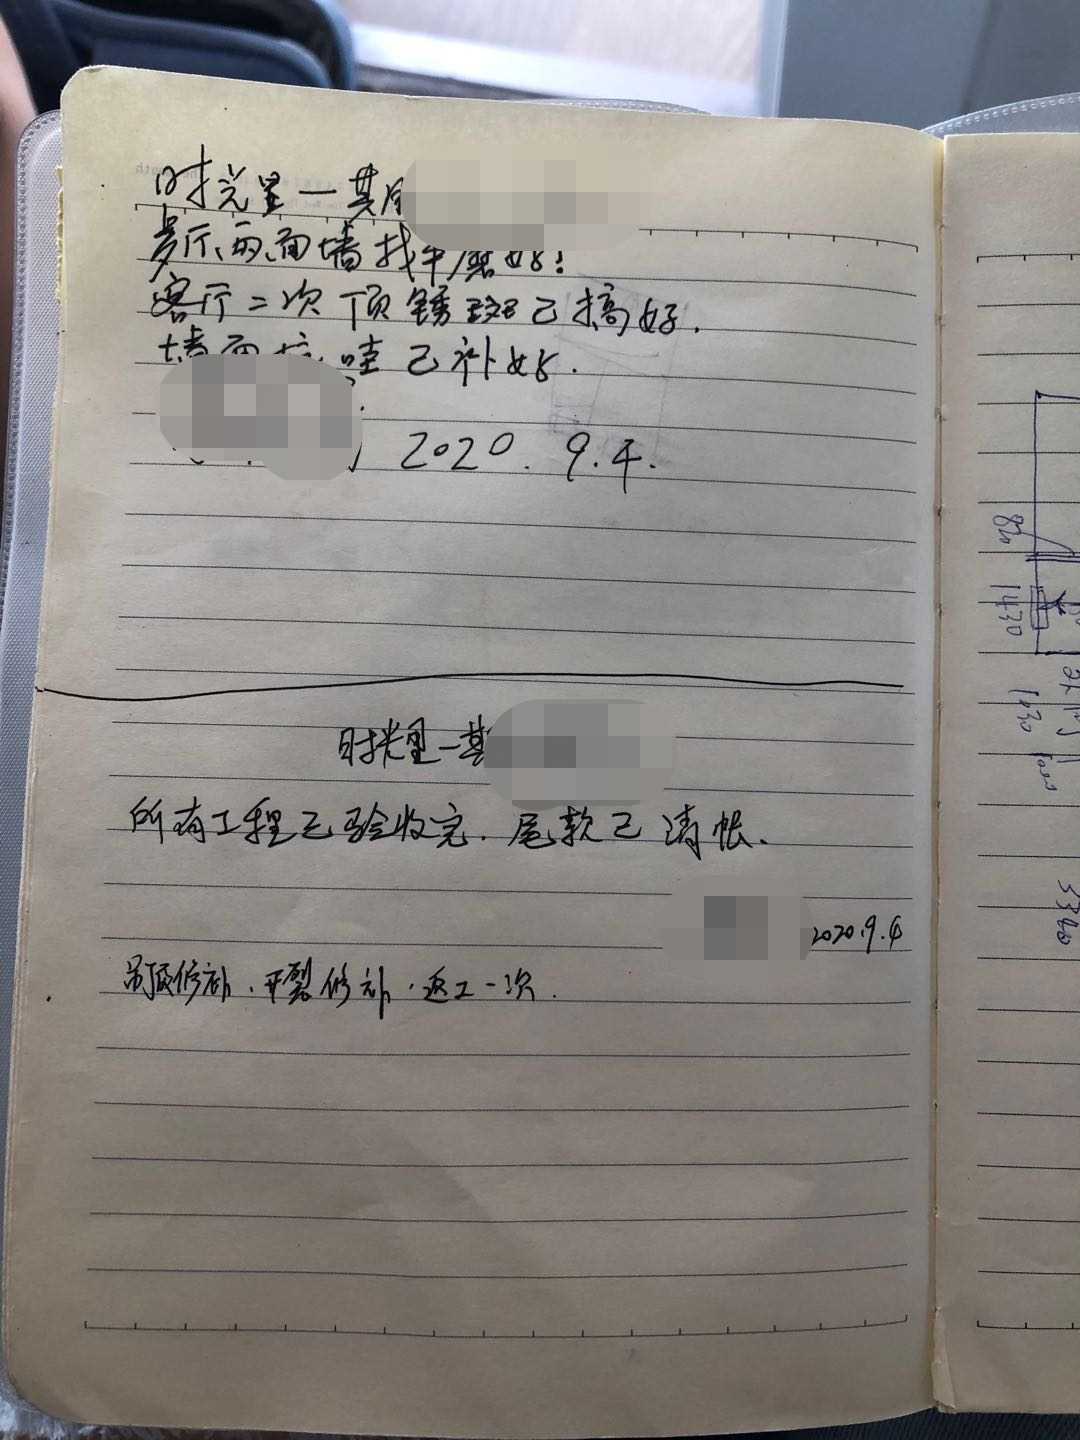 时光里一其
厅、两面墙找平磨好!
客厅二次顶锈斑已搞好.
墙面坑哇已补好.
2020.9.4.
时光里一其
所有工程已验收完.尾款已清帐.
2020.9.4
吊顶修补.开裂修补.返工一次.
820
1430
1030
3340